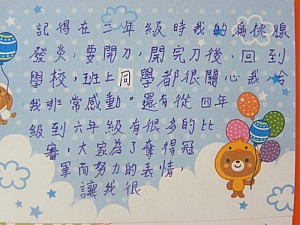 記得在二年級時我的扁桃腺
發炎,要開刀,開完刀後,回到
學校,班上同學都很關心我,令
我非常感動。還有從四年
級到六年級有很多的比
賽,大家為了奪得冠
軍而努力的表情,
讓我很